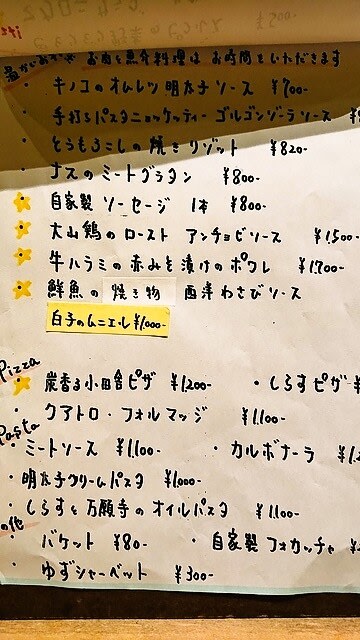 温かいおかず お肉と魚介料理は お時間をいただきます
・ キノコのオムレツ 明太子ソース ¥700-
・ 手打ちパスタニョッケッティー ゴルゴンゾーラソース
・ とうもろこしの焼きリゾット ¥820-
・ ナスのミートグラタン ¥800-
自家製 ソーセージ 1本 ¥800-
大山鶏のロースト アンチョビソース ¥1,500-
牛ハラミの赤みそ漬けのポワレ ¥1,700-
鮮魚の 焼き物 西洋わさびソース
白子のムニエル ¥1,000-
Pizza
炭香る小田舎ピザ ¥1,200- ・しらすピザ
・ クアトロ・フォルマッジ ¥1,100-
Pasta
・ミートソース ¥1,100- ・カルボナーラ
・明太子クリームパスタ ¥1,000-
・しらすと万願寺のオイルパスタ ¥1,100-
の他
・ バケット ¥80- ・自家製フォカッチャ
・ ゆずシャーベット ¥300-